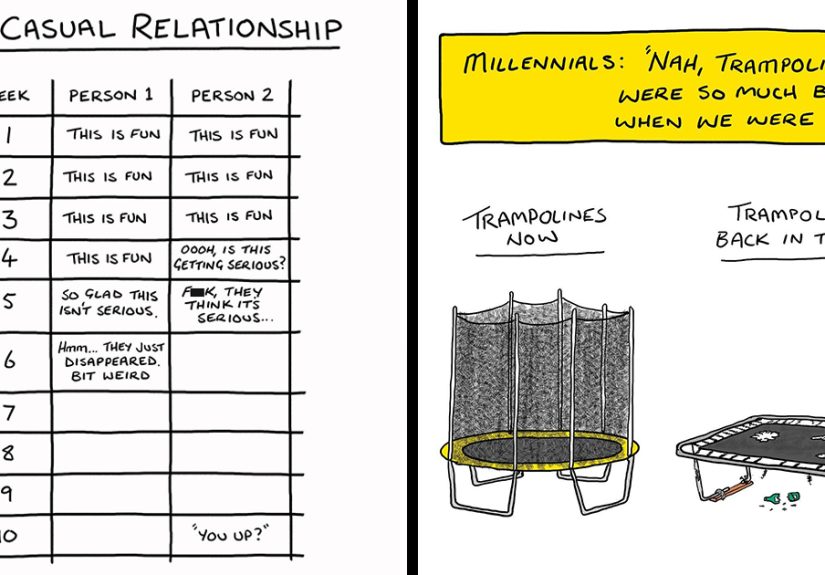 CASUAL RELATIONSHIP
EEK PERSON 1 PERSON 2
1 THIS IS FUN THIS IS FUN
2 THIS IS FUN THIS IS FUN
3 THIS IS FUN THIS IS FUN
4 THIS IS FUN OOOH, IS THIS
GETTING SERIOUS?
5 SO GLAD THIS
ISN'T SERIOUS.
F■K, THEY
THINK IT'S
SERIOUS...
6 Hmm... THEY JUST
DISAPPEARED.
BIT WEIRD
7
8
9
10 "YOU UP?"
MILLENNIALS: "NAH, TRAMPOLI
WERE SO MUCH B
WHEN WE WERE
TRAMPOLINES
NOW
TRAMPOL
BACK IN T